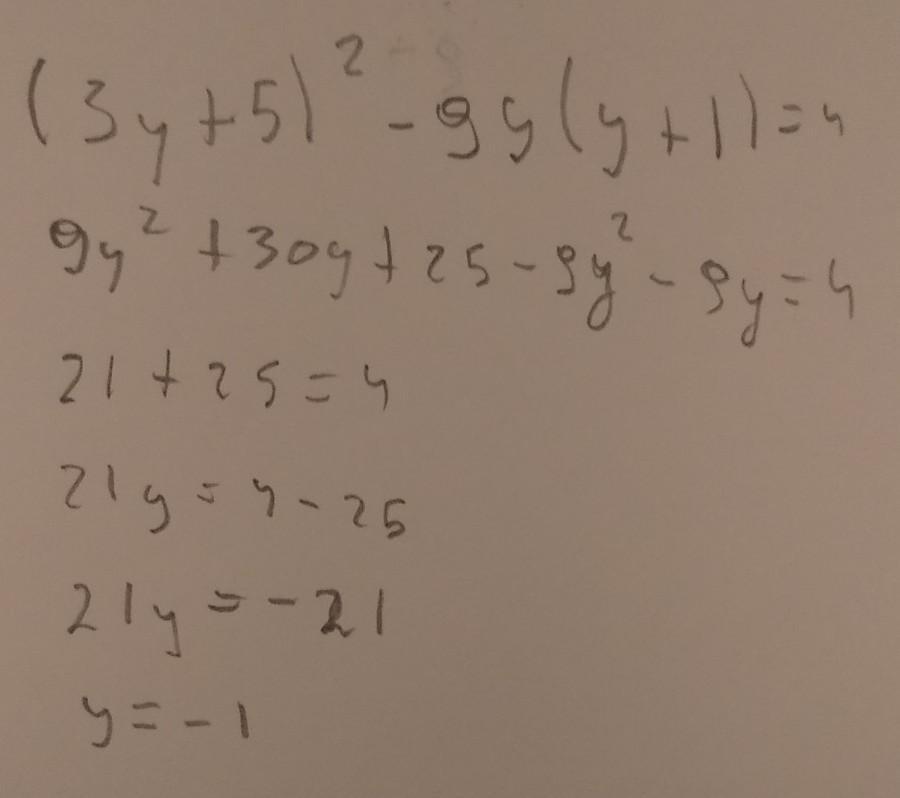 (3y+5)² - 9y(y+1)=4
9y² +30y+25-9y² - 9y=4
21+25=4
21y=4-25
21y=-21
y=-1